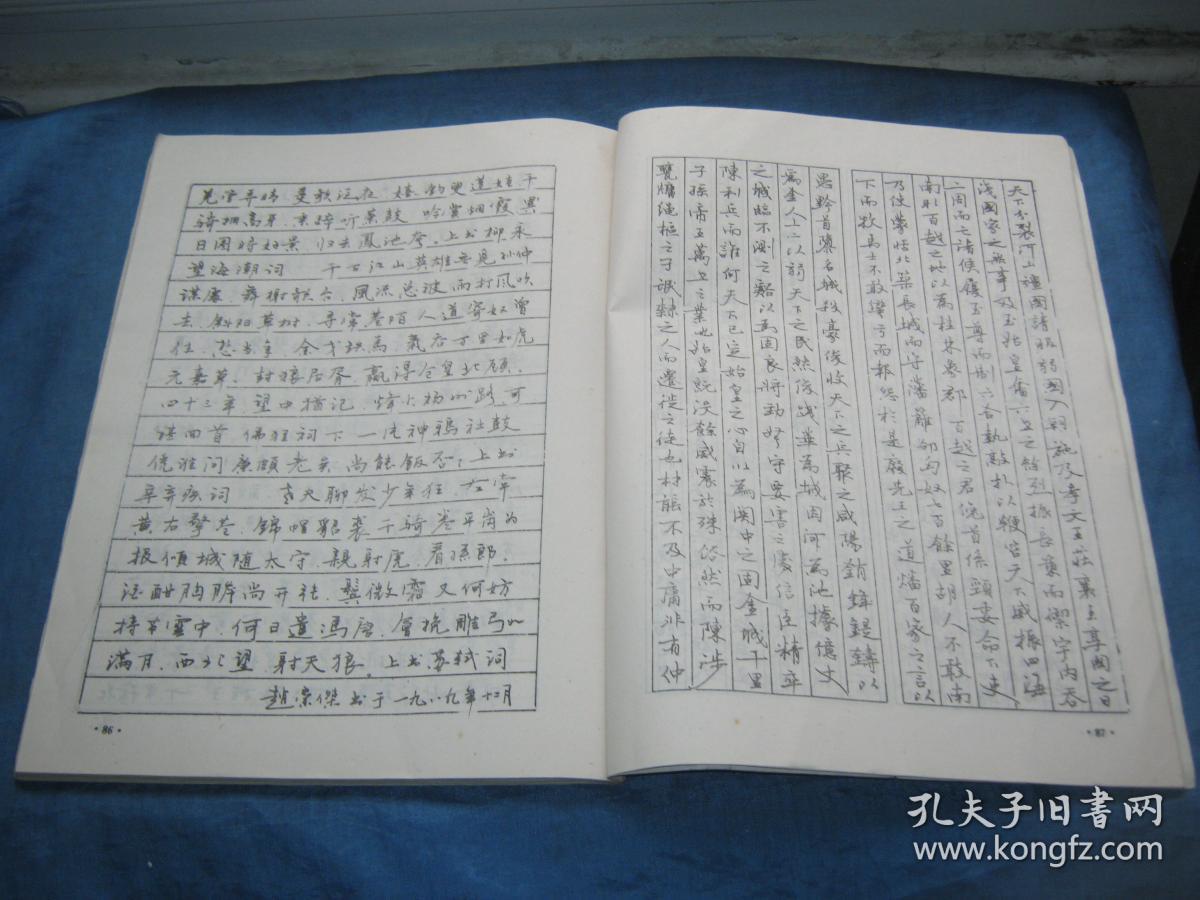 羌管弄晴 菱歌泛夜 嬉釣叟蓮娃 千
骑拥高牙 乘醉听萧鼓 吟赏烟霞 異
日图将好景 归去鳳池夸 上书柳永
望海潮词 千古江山 英雄无觅 孙仲
谋處 舞榭歌台 風流总被 雨打风吹
去 斜阳草树 寻常巷陌 人道寄奴曾
住 想当年 金戈铁馬 氣吞万里如虎
元嘉草草 封狼居胥 赢得仓皇北顾
四十三年 望中猶记 烽火扬州路 可
堪回首 佛狸祠下 一片神鴉社鼓
凭谁问 廉頗老矣 尚能饭否 上书
辛弃疾词 老夫聊发少年狂 左牵
黄右擎苍 錦帽貂裘 千骑卷平岗 为
报倾城随太守 親射虎 看孫郎
酒酣胸膽尚开张 鬓微霜又何妨
持节雲中 何日遣馮唐 會挽雕弓如
满月 西北望 射天狼 上书苏轼词
趙宗傑书于一九八九年十二月
·86·
天下分裂河山疆國請服弱國入朝施及孝文王莊襄王享國之日
淺國家之無事及至始皇奮六世之餘烈振長策而御宇内吞
二周而亡諸侯履至尊而制六合執敲扑以鞭笞天下威振四海
南取百越之地以為桂林象郡百越之君俛首係頸委命下吏
乃使蒙恬北築長城而守藩籬却匈奴七百餘里胡人不敢南
下而牧馬士不敢彎弓而報怨於是廢先王之道燔百家之言以
愚黔首隳名城殺豪俊收天下之兵聚之咸陽銷鋒鍉鑄以
為金人十二以弱天下之民然後踐華為城因河為池據億丈
之城臨不測之谿以為固良將勁弩守要害之處信臣精卒
陳利兵而誰何天下已定始皇之心自以為関中之固金城千里
子孫帝王萬世之業也始皇既没餘威震於殊俗然而陳涉
甕牖繩樞之子氓隸之人而遷徙之徒也材能不及中庸非有仲
·87·
孔夫子旧書网
www.kongfz.com